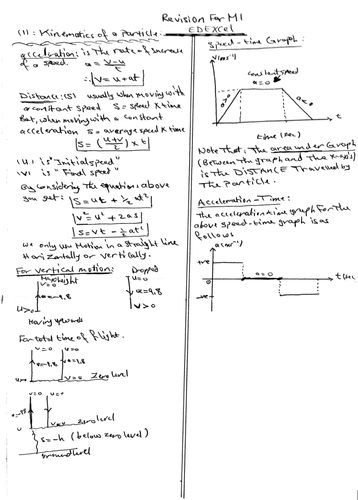 Revision For M1
EDEXCEL
(1): Kinematics of a Particle.
acceleration: is The rate of increase
of a speed. a = v-u/t
∴ v = u + at
Distance:(S) usually when moving with
a constant speed S = speed x time
But, when moving with a constant
acceleration S = average speed x time
S = (u+v/2) x t
"u" is "Initial speed"
"v" is "Final speed"
By Considering the equations above
you get: S = ut + 1/2 at²
v² = u² + 2as
S = vt - 1/2 at²
we only use Motion in a straight line
Horizontally or vertically.
For vertical motion:
Max height
v=0
a=-9.8
u>0
Moving upwards
Dropped
u=0
a=9.8
v>0
For total time of flight.
v=0 u=0
a=-9.8 9.8
u>0 v=0 Zero level
v=0 u=0
u zero level
S=-h (below zero level)
ground level
Speed-time Graph:
v(ms⁻¹)
constant speed
a=0
a>0
a<0
t
time (sec)
Note that, The area under Graph
(Between the graph and the x-axis)
is the DISTANCE Travelled by
The Particle.
Acceleration-Time:
The acceleration-time graph for the
above speed-time graph is as
follows
a(ms⁻²)
+ve
a=0
-ve